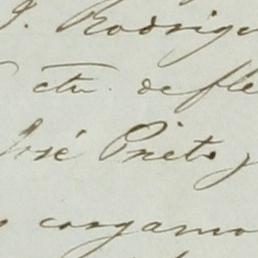 J. Rodrigu
ctu. defle
José Prieto y
cargamo